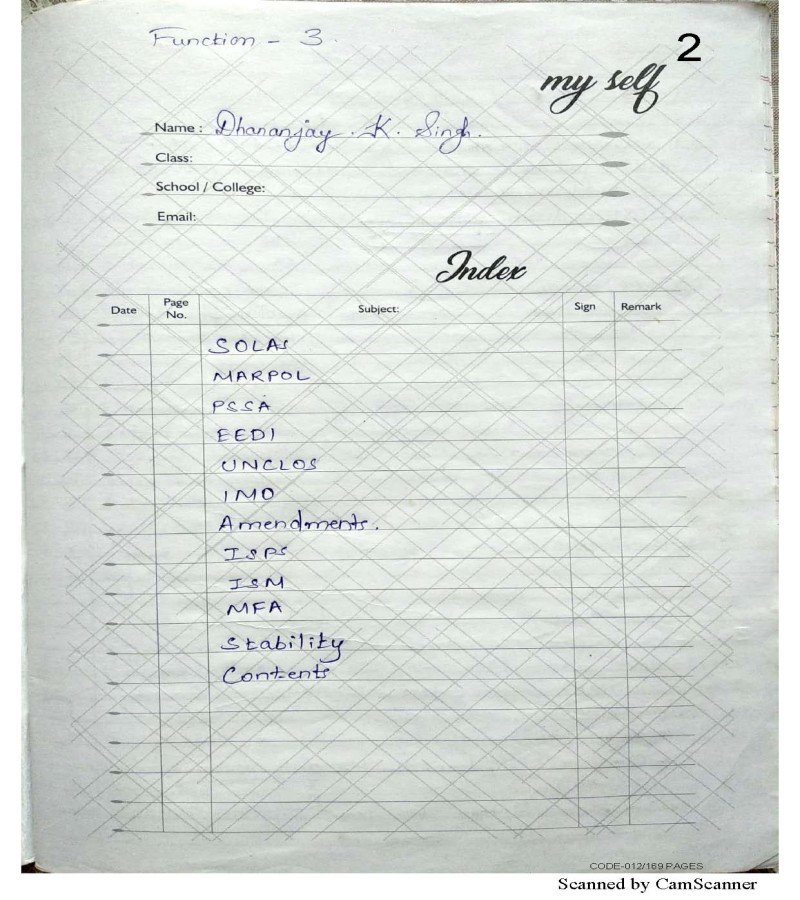 Function - 3.
2
my self
Name: Dhananjay. K. Singh.
Class:
School / College:
Email:
Index
Date Page No. Subject: Sign Remark
SOLAS
MARPOL
PSSA
EEDI
UNCLOS
IMO
Amendments.
ISPS
ISM
MFA
Stability
Contents
CODE-012/169 PAGES
Scanned by CamScanner